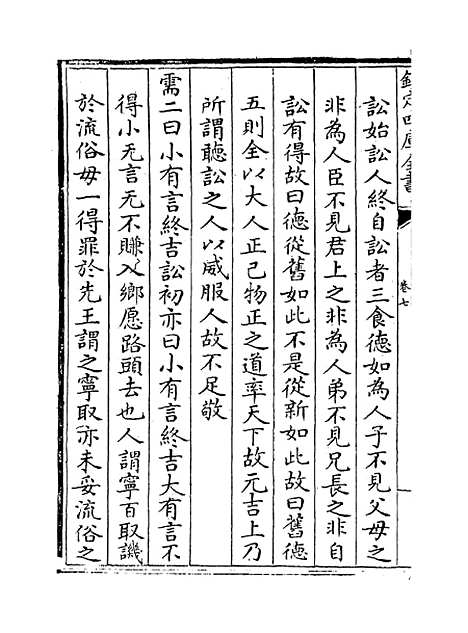 欽定四庫全書
卷七
訟始訟人終自訟者三食德如為人子不見父母之
非為人臣不見君上之非為人弟不見兄長之非自
訟有得故曰德從舊如此不是從新如此故曰舊德
五則全以大人正己物正之道率天下故元吉上乃
所謂聽訟之人以威服人故不足敬
需二曰小有言終吉訟初亦曰小有言終吉大有言不
得小无言无不賺入鄉愿路頭去也人謂寧百取譏
於流俗毋一得罪於先王謂之寧取亦未妥流俗之